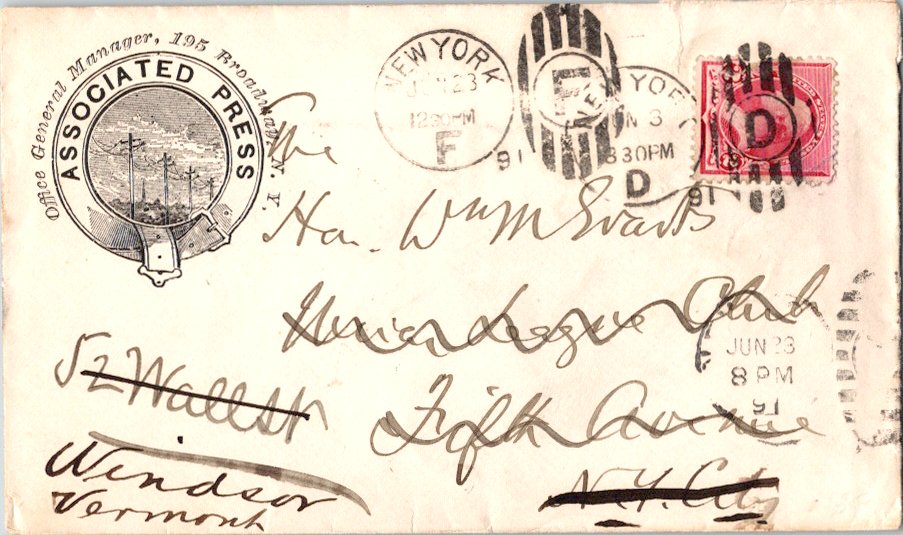 Office General Manager, 195 Broadway, N. Y.
ASSOCIATED PRESS
NEW YORK
JUN 23
12 30 PM
F
91
F
NEW YORK
330PM
D
91
D
The
Hon. Wm M Evarts
Union League Club
Fifth Avenue
N. Y. City
JUN 23
8 PM
91
52 Wall St
Windsor
Vermont